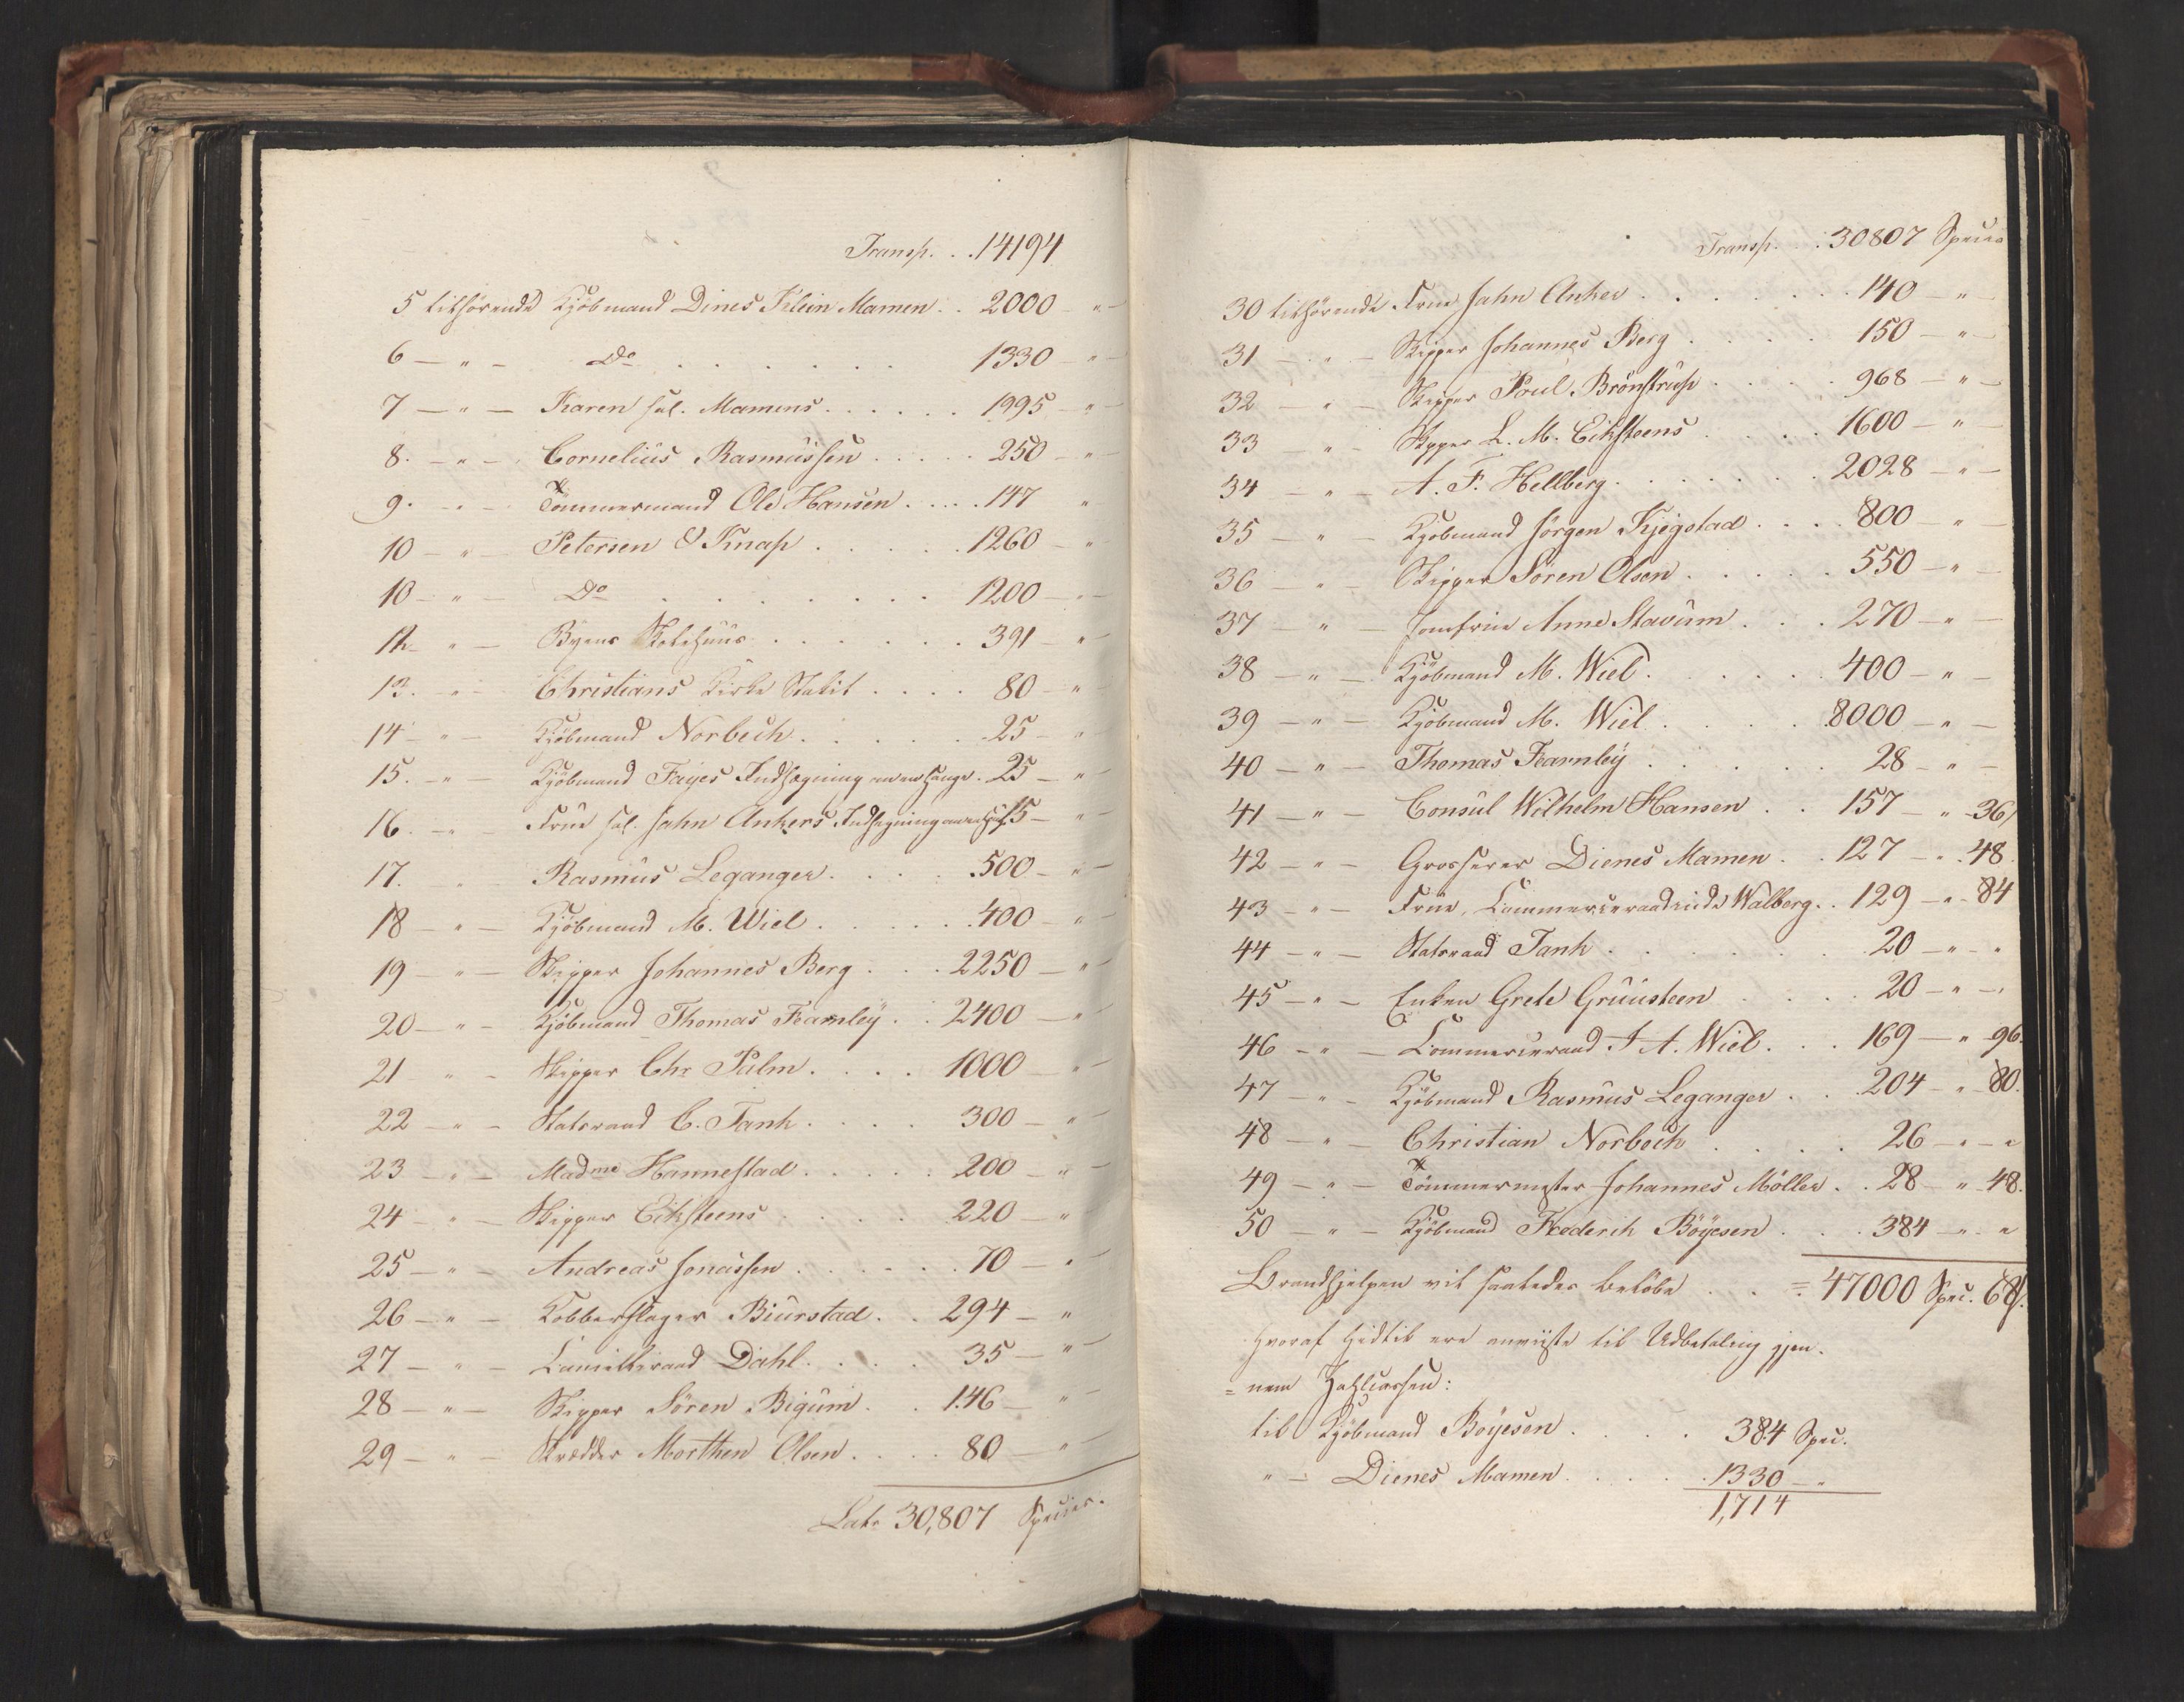 Transp. . . 14194
5 tilhørende Kjöbmand Dines Klein Mamen . . 2000 - " -
6 - " - Do . . . . . . . 1330 - " -
7 - " - Karen sal. Mamens . . . . . . 1995 - " -
8. - " - Cornelius Rasmussen . . . . . 250 - " -
9. - " - Tömmermand Ole Hansen . . . . . 147 "
10 - " - Petersen & Knap . . . . . . 1260 - "
10 - " - Do . . . . . . . . 1200 - " -
12 - " - Byens . . . . . . . 391 - "
13. - " - Christians Kirke Stakit . . . . 80 - "
14 - " - Kjöbmand Norbech . . . . . . 25 - "
15. - " - Kjöbmand Fayes Indhegning hauge . 25 - " -
16. - " - Frue sal. Jahn Ankers Indhegning 15 - " -
17. " - Rasmus Leganger . . . . . 500 - " -
18 - " - Kjöbmand M. Wiel . . . . . . 400 - " -
19 - " - Skipper Johannes Berg . . . 2250 - " -
20 - " - Kjöbmand Thomas Fearnley . . 2400 - " -
21 " - Skipper Chr Palm . . . . 1000 - " -
22 - " - Statsraad C. Tank . . . . 300 - " -
23 - " - Madme Hannestad . . . . . 200 - " -
24 - " - Skipper Eiksteens . . . . . 220 - "
25 - " - Andreas Jonassen . . . . . . 70 - " -
26 - " - Kobberslager Biurstad . . 294 - "
27 - " - Cancelliraad Dahl . . . . 35 - " -
28 - " - Skipper Sören Bigum . . 146 - " -
29 - " - Skrædder Morthen Olsen . . . . 80 - " -
Lats 30,807 Species.
Transp. . . 30807 Specier
30 tilhørende Frue Jahn Anker . . . . . . . 140 - " -
31 - " - Skipper Johannes Berg . . . . 150 - " -
32 - " - Skipper Poul Brönstrup . . . . 968 - " -
33 " - Skipper L. M. Eiksteens . . . . 1600 - " -
34 - " - A. F. Hellberg . . . . . . . 2028 - " -
35 - " - Kjöbmand Jörgen Kjegstad . . . . 800 - " -
36 - " - Skipper Sören Olsen . . . . . 550 - " -
37 - " Jomfrue Anne Stavum . . . . 270 - " -
38 - " - Kjöbmand M. Wiel . . . . . . 400 - " -
39 - " - Kjöbmand M. Wiel . . . . . 8000 - " -
40 - " - Thomas Fearnley . . . . . . 28 - " -
41 - " - Consul Wilhelm Hansen . . 157 - " - 36
42 - " - Grosserer Dienes Mamen . . 127 - " . 48.
43 - " - Frue, Commerceraadinde Walberg . . 129 - " - 84
44 - " - Statsraad Tank . . . . . . . 20 - " - "
45 - " - Enken Grete Gruusteen . . . . 20 - " - "
46 - " - Commerceraad J A. Wiel . . . 169 - " 96.
47 - " - Kjöbmand Rasmus Leganger . . . 204 - " 80.
48 - " - Christian Norbech . . . . . 26 - " - "
49 - " - Tömmermester Johannes Möller . . 28 - " - 48.
50 - " - Kjöbmand Frederik Böyesen . . . 384 - " "
Brandhjelpen vil saaledes belöbe . . = 47000 Spec. 68
Hvoraf hidtil ere anviiste til Udbetaling gjen-
= nem Zahlcassen:
til Kjöbmand Boyesen . . . . . 384 Spec.
" - Dienes Mamen . . . . . 1330 - "
1,714